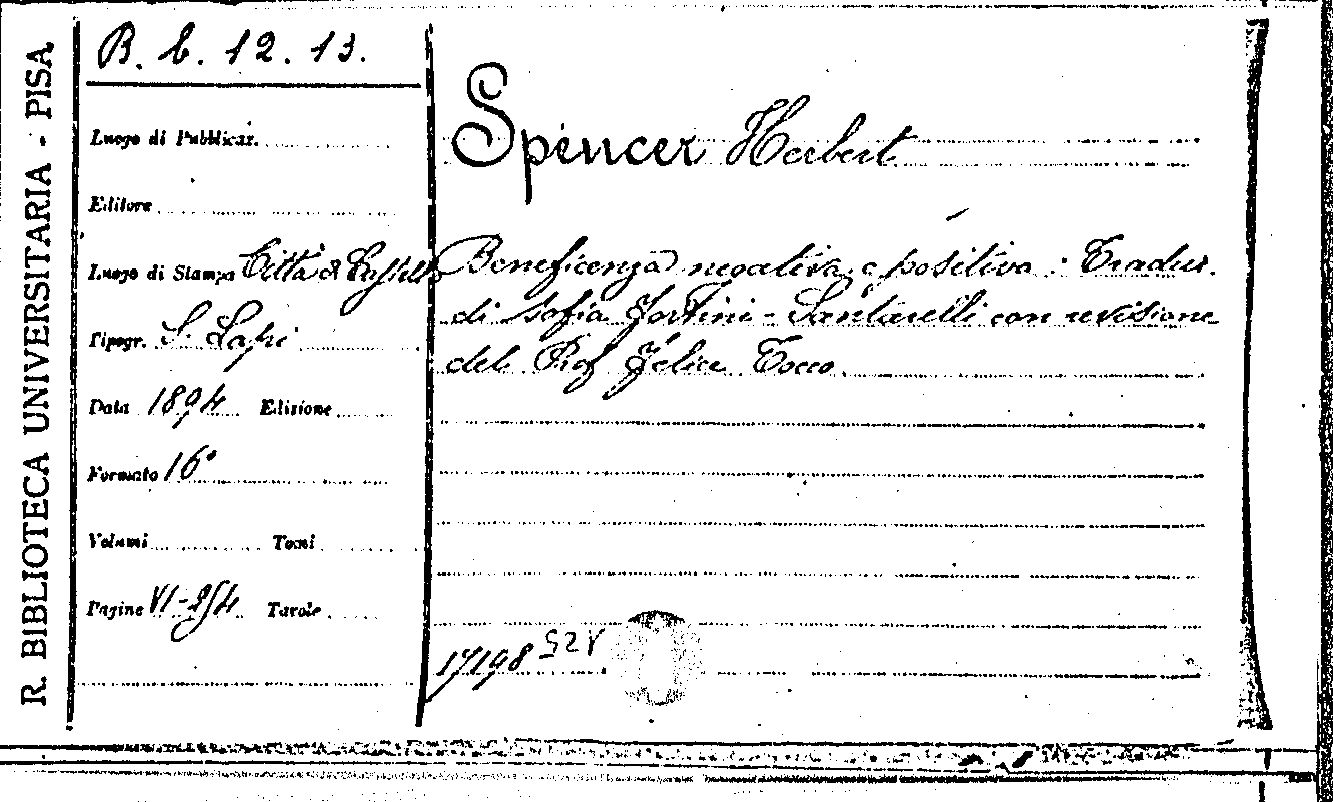 R. BIBLIOTECA UNIVERSITARIA - PISA
B. b. 12. 13.
Luogo di Pubblicaz.
Editore
Luogo di Stampa Città di Castello
Tipogr. S. Lapi
Data 1894 Edizione
Formato 16°
Volumi Tomi
Pagine VI-254 Tavole
Spencer Herbert
Beneficenza negativa e positiva. Traduz.
di Sofia Fortini-Santarelli con revisione
del Prof Felice Tocco.
17198